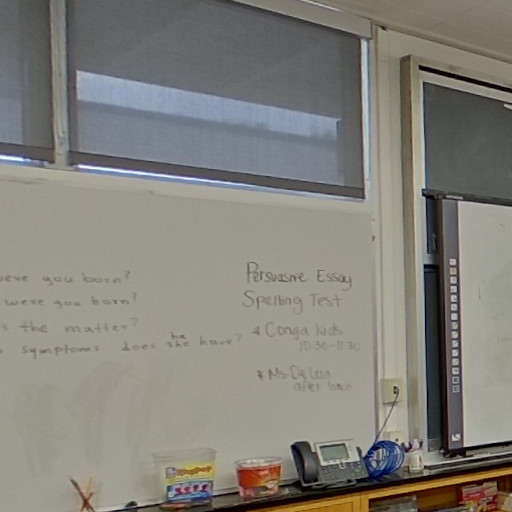 were you born?
were you born?
the matter?
symptoms does he
she have?
Persuasive Essay
Spelling Test
* Conga Kids
10:30-11:30
* Ms. De Leon
after lunch